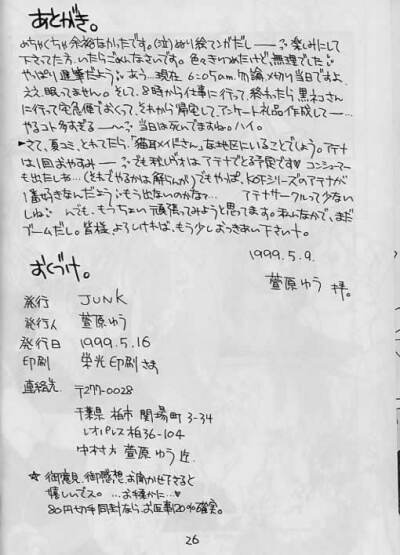 あとがき。
めちゃくちゃ余裕なかったです。(泣) ぬり絵マンガだし── 楽しみにして
下さってた方、いたらごめんなさいです。色々きりつめたけど、無理でした
やっぱり進撃だよう あう…現在 6:05am. 勿論〆切り当日ですよ、
ええ、眠ってません。そして、8時から仕事に行って、終わったら黒ネコさん
に行って宅急便でおくって、それから帰宅して、アンケート礼品作成して──…
やるコト多すぎる──〜 当日は死んでますね。ハイ。
▶さて、夏コミ、とれてたら、「猫耳メイドさん」な地区にいることでしょう。アテナ
は1回おやすみ── でも秋レヴォはアテナでとる予定です♥ コンシューマー
も出たしね…(それでやるかは解らんが)でもやっぱ、KOFシリーズのアテナが
1番好きなんだよう もう出ないのかな?… アテナサークルって少ない
しね んでも、もうちょい頑張ってみようと思ってます。私ん中で、まだ
ブームだし。皆様、よろしければ、もう少しおつきあい下さいナ。
1999.5.9.
萱原ゆう 拝。
おくづけ。
発行 JUNK
発行人 萱原ゆう
発行日 1999.5.16
印刷 栄光印刷さま
連絡先 〒277-0028
千葉県 柏市 関場町 3-34
レオパレス柏36-104
中村方 萱原ゆう 迄.
☆ 御意見、御感想お聞かせ下さると
嬉しいでス。…お優しかに…♥
80円切手同封なら、お返事120%確実。
26